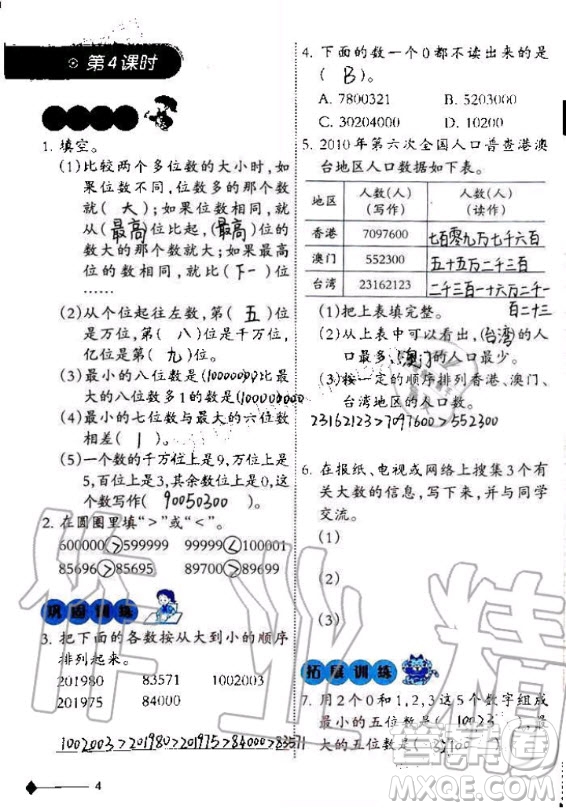 第4课时
1. 填空。
(1)比较两个多位数的大小时,如
果位数不同,位数多的那个数就
(大);如果位数相同,就
从(最高)位比起,(最高)位的
数大的那个数就大;如果最高
位的数相同,就比(下一)位
……
(2)从个位起往左数,第(五)位
是万位,第(八)位是千万位,
亿位是第(九)位。
(3)最小的八位数是(10000000)比
最大的八位数多1的数是(100000000
(4)最小的七位数与最大的六位数
相差(1)。
(5)一个数的千万位上是9,万位上是
5,百位上是3,其余数位上是0,这
个数写作(90050300)
2. 在圆圈里填“>”或“<”。
600000>599999 99999<100001
85696>85695 89700>89699
巩固训练
3. 把下面的各数按从大到小的顺序
排列起来。
201980 83571 1002003
201975 84000
1002003>201980>201975>84000>83571
4
4. 下面的数一个0都不读出来的是
(B)。
A. 7800321 B. 5203000
C. 30204000 D. 10200
5. 2010年第六次全国人口普查港澳
台地区人口数据如下表。
地区 人数(人)(写作) 人数(人)(读作)
香港 7097600 七百零九万七千六百
澳门 552300 五十五万二千三百
台湾 23162123 二千三百一十六万二千一
百二十三
(1)把上表填完整。
(2)从上表中可以看出,(台湾)的人
口最多,(澳门)的人口最少。
(3)按一定的顺序排列香港、澳门、
台湾地区的人口数。
23162123>7097600>552300
6. 在报纸、电视或网络上搜集3个有
关大数的信息,写下来,并与同学
交流。
(1)
(2)
(3)
拓展训练
7. 用2个0和1,2,3这5个数字组成
最小的五位数是(10023),最
大的五位数是(32100)
作业精
答案圈
MXQE.COM